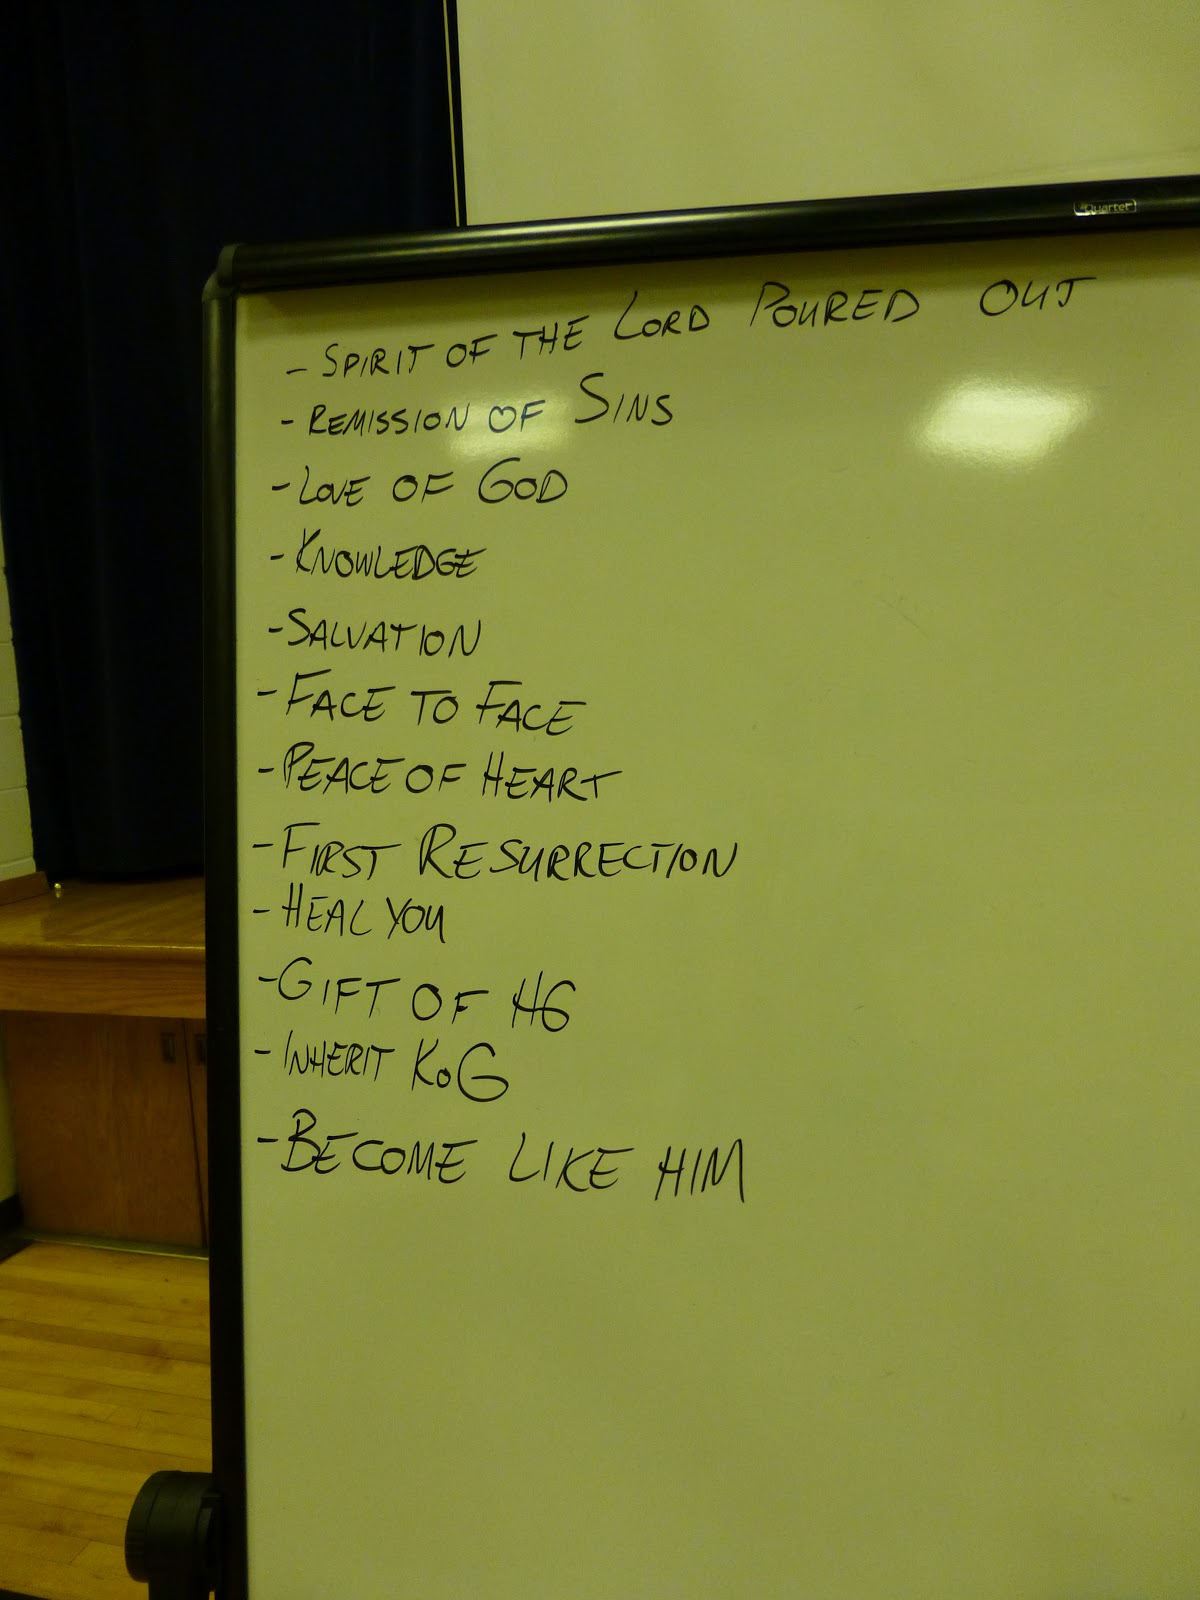 Quartet
- SPIRIT OF THE LORD POURED OUT
- REMISSION OF SINS
- LOVE OF GOD
- KNOWLEDGE
- SALVATION
- FACE TO FACE
- PEACE OF HEART
- FIRST RESURRECTION
- HEAL YOU
- GIFT OF HG
- INHERIT KoG
- BECOME LIKE HIM